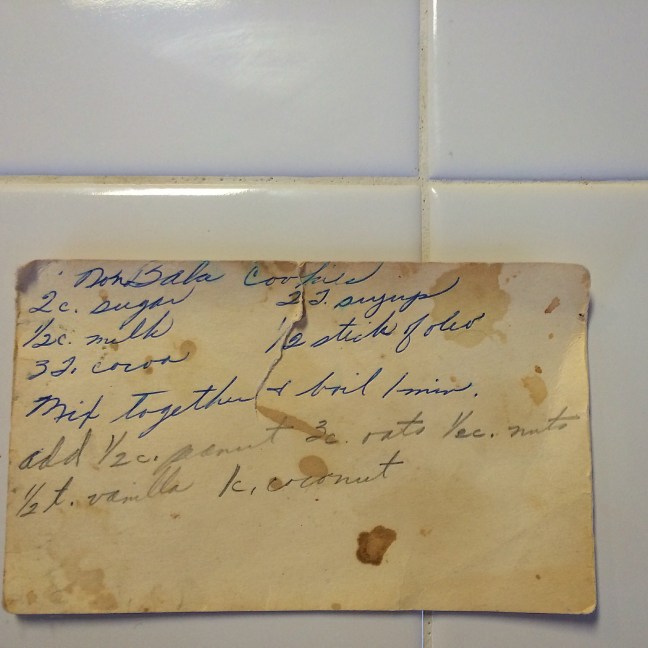 Non Bake Cookies
2 c. sugar 2 T. syrup
1/2 c. milk 1/2 stick of oleo
3 T. cocoa
Mix together & boil 1 min.
add 1/2 c. peanut 3 c. oats 1/2 c. nuts
1/2 t. vanilla 1 c. coconut